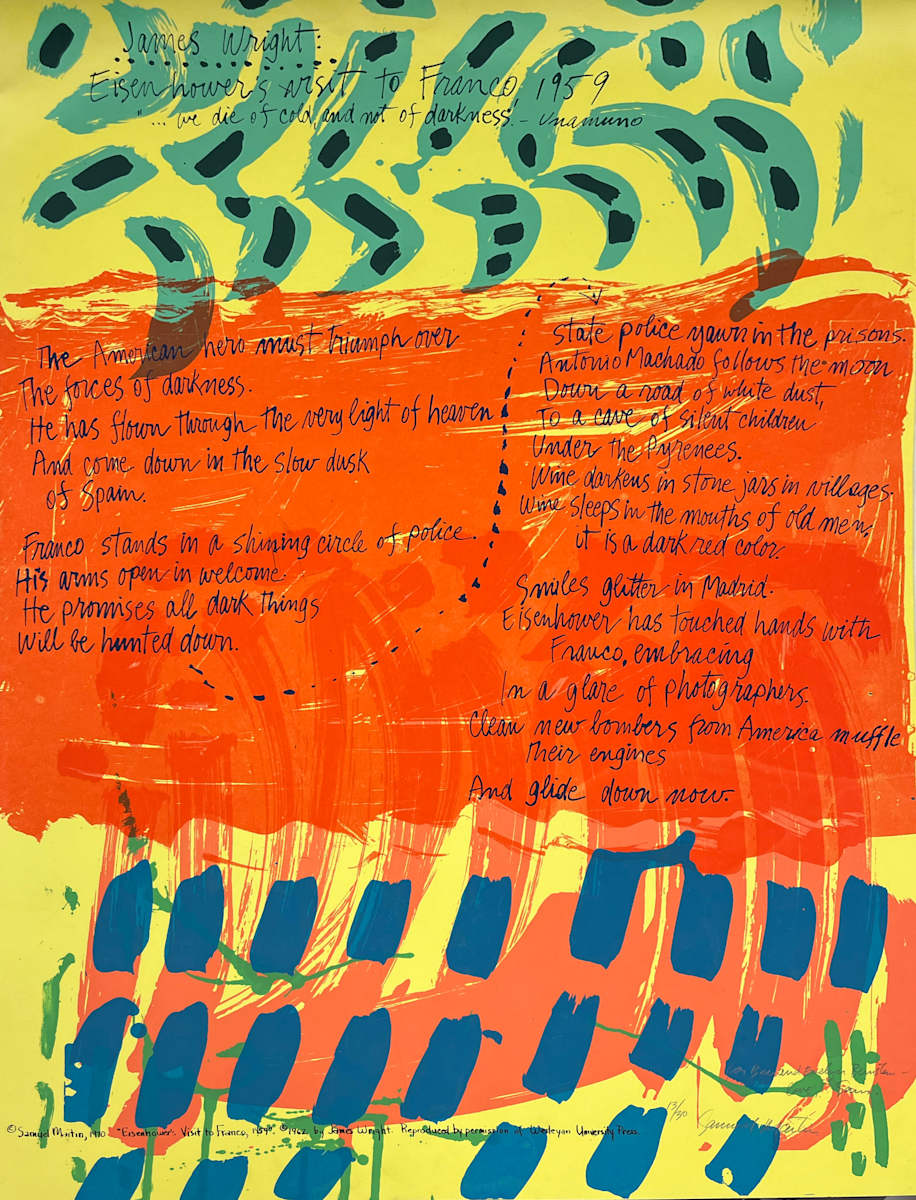 James Wright:
Eisenhower's visit to Franco, 1959
"... we die of cold, and not of darkness." - Unamuno
The American hero must triumph over
The forces of darkness.
He has flown through the very light of heaven
And come down in the slow dusk
of Spain.
Franco stands in a shining circle of police.
His arms open in welcome.
He promises all dark things
Will be hunted down.
State police yawn in the prisons.
Antonio Machado follows the moon
Down a road of white dust,
To a cave of silent children
Under the Pyrenees.
Wine darkens in stone jars in villages.
Wine sleeps in the mouths of old men,
it is a dark red color.
Smiles glitter in Madrid.
Eisenhower has touched hands with
Franco, embracing
In a glare of photographers.
Clean new bombers from America muffle
Their engines
And glide down now.
13/30
© Samuel Martin, 1980 "Eisenhower's Visit to Franco, 1959" © 1962 by James Wright. Reproduced by permission of Wesleyan University Press.